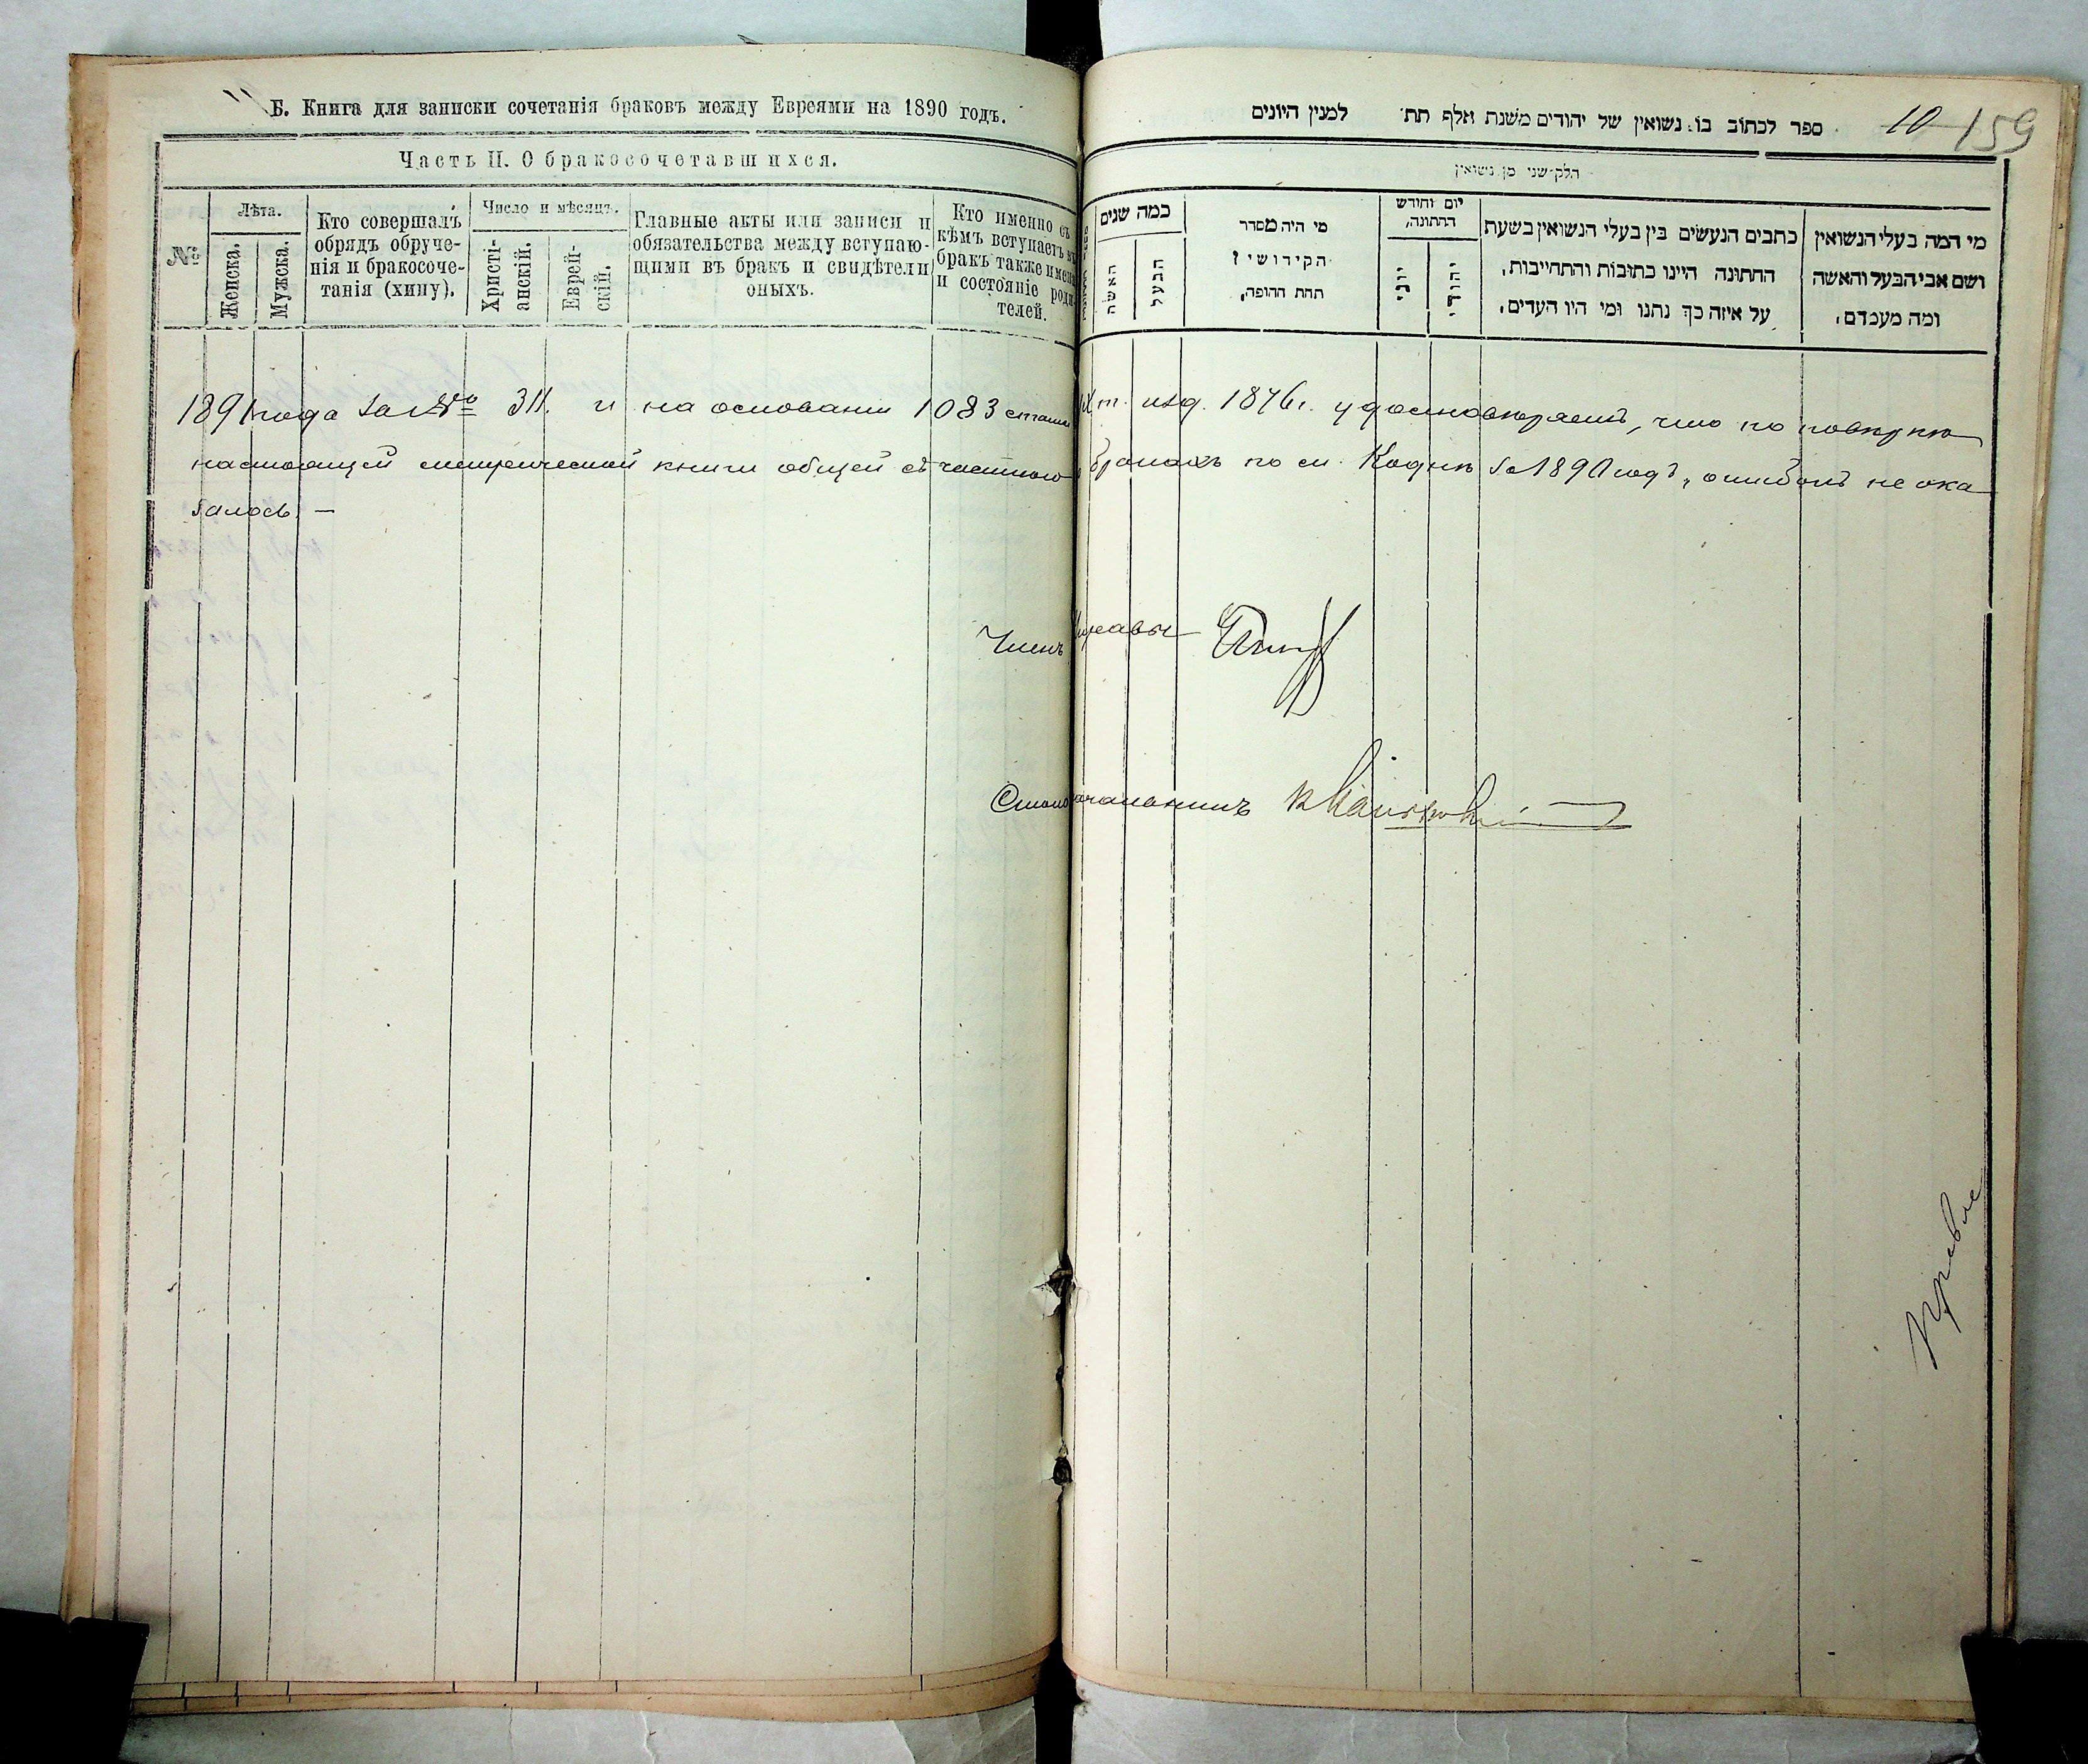 Б. Книга для записки сочетанія браковъ между Евреями на 1890 годъ.
Часть II. О бракосочетавшихся.
№
Лѣта.
Женска.
Мужска.
Кто совершалъ
обрядъ обруче-
нія и бракосоче-
танія (хипу).
Число и мѣсяцъ.
Христі-
анскій.
Еврей-
скій.
Главные акты или записи и
обязательства между вступаю-
щими въ брак и свидѣтели
оныхъ.
Кто именно съ
кѣмъ вступаетъ въ
бракъ также имена
и состояніе роди
телей.
10 159
ספר לכתוב בו נשואין של יהודים משנת אלף תת׳ למנין היונים
חלק שני מן נשואין
כמה שנים
האשה
הבעל
מי היה מסדר
הקידושין
תחת החופה,
יום וחודש
החתונה,
יוני
יהודי
כתבים הנעשים בין בעלי הנשואין בשעת
החתונה היינו כתובות והתחייבות,
על איזה כך נתנו ומי היו העדים,
מי המה בעלי הנשואין
ושם אבי הבעל והאשה
ומה מעמדם,
1891 года за № 311. и на основании 1083 статьи IX т. изд. 1876 г. удостовѣряетъ, что по повѣркѣ
настоящей метрической книги общей съ частною о бракахъ по м. Коднѣ за 1890 годъ, ошибокъ не ока
залось. —
Членъ Управы
Столоначальникъ